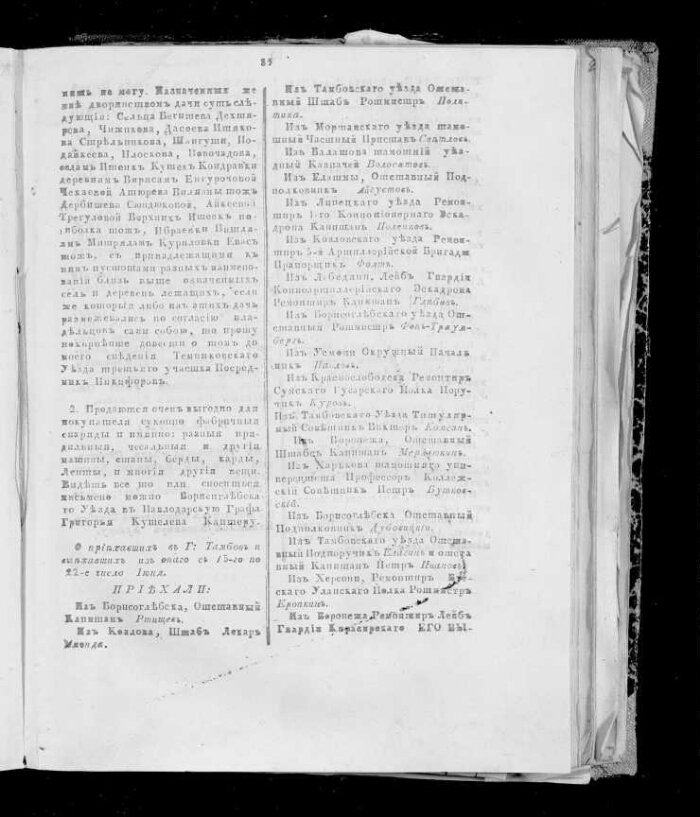 89
нишь не могу. Назначенныя же
мнѣ дворянствомъ дачи суть слѣ-
дующія: Сельца Бегишева Дехтя-
рова, Чижикова, Дасоева Ишяко-
ва Стрѣльникова, Шаигуши, По-
дайкеева, Плоскова, Повочадова,
седамъ Ишеикъ Кушекъ Кондравки
деревнямъ Вирясамъ Енгурочовой
Чекаевой Ашюрева Вилязмы тожъ
Дербишева Сюндюковой, Айкеевой
Трегуловой Верхнихъ Ишеекъ по-
зиболка тожъ, Ибраевки Пишля-
ямъ Митрялямъ Куриловки Евасъ
тожъ, съ принадлежащими къ
нимъ пустошами разныхъ наимено-
ваній близь выше означенныхъ
селъ и деревень лежащихъ, если
же которыя либо изъ этихъ дачъ
размежевались по согласію вла-
дѣльцовъ сами собою, то прошу
покорнѣйше довести о томъ до
моего свѣденія Темниковскаго
Уѣзда третьяго участка Посред-
никъ Никифоровъ.
2. Продаются очень выгодно для
покупателя суконно фабричныя
снаряды и именно: разныя пря-
дильныя, чесальныя и другія
машины, станы, берды, карды,
Ленты, и многія другія вещи.
Видѣть все то или сноситься
письмено можно Борисоглѣбска-
го Уѣзда въ Павлодарскую Графа
Григорья Кушелева Контору.
О пріѣхавшихъ въ Г: Тамбовъ и
выѣхавшихъ изъ онаго съ 15-го по
22-е число Іюня.
ПРІѢХАЛИ:
Изъ Борисоглѣбска, Отставный
Капитанъ Ртищевъ.
Изъ Козлова, Штабъ Лекарь
Изъ Тамбовскаго уѣзда Отста-
вный Штабъ Ротмистръ Поля-
тика.
Изъ Моршанскаго уѣзда тамо-
шный Частный Приставъ Септловъ.
Изъ Балашова тамошній уѣз-
дный Казначей Волосатовъ.
Изъ Елатмы, Отставный Под-
полковникъ Августовъ.
Изъ Липецкаго уѣзда Ремон-
тиръ 1-го Коннопіонернаго Эска-
дрона Капитанъ Поленковъ.
Изъ Козловскаго уѣзда Ремон-
тиръ 5-й Артиллерійской Бригады
Прапорщикъ Фохтъ.
Изъ Лебедяни, Лейбъ Гвардіи
Конноартиллерійскаго Эскадрона
Ремонтиръ Капитанъ Глѣбовъ.
Изъ Борисоглѣбскаго уѣзда От-
ставный Ротмистръ Фонъ-Траум-
бергъ.
Изъ Усмони Окружный Началь-
никъ Павловъ.
Изъ Краснослободска Ремонтиръ
Сумскаго Гусарскаго Полка Пору-
чикъ Куровъ.
Изъ Тамбовскаго Уѣзда Титуляр-
ный Совѣтникъ Викторъ Комсинъ.
Изъ Воронежа, Отставный
Штабсъ Капитанъ Мерлюткинъ.
Изъ Харькова тамошняго уни-
верситета Профессоръ Коллеж-
скій Совѣтникъ Петръ Бутков-
скій.
Изъ Борисоглѣбска Отставный
Подполковникъ Дубовицкій.
Изъ Тамбовскаго уѣзда Отста-
вный Подпоручикъ Елагинъ и отста-
вный Капитанъ Петръ Ивановъ.
Изъ Херсони, Ремонтиръ
скаго Уланскаго Полка Ротмистръ
Кропкинъ.
Изъ Воронежа, Ремонтиръ Лейбъ
Гвардіи Кирасирскаго ЕГО ВЫ-